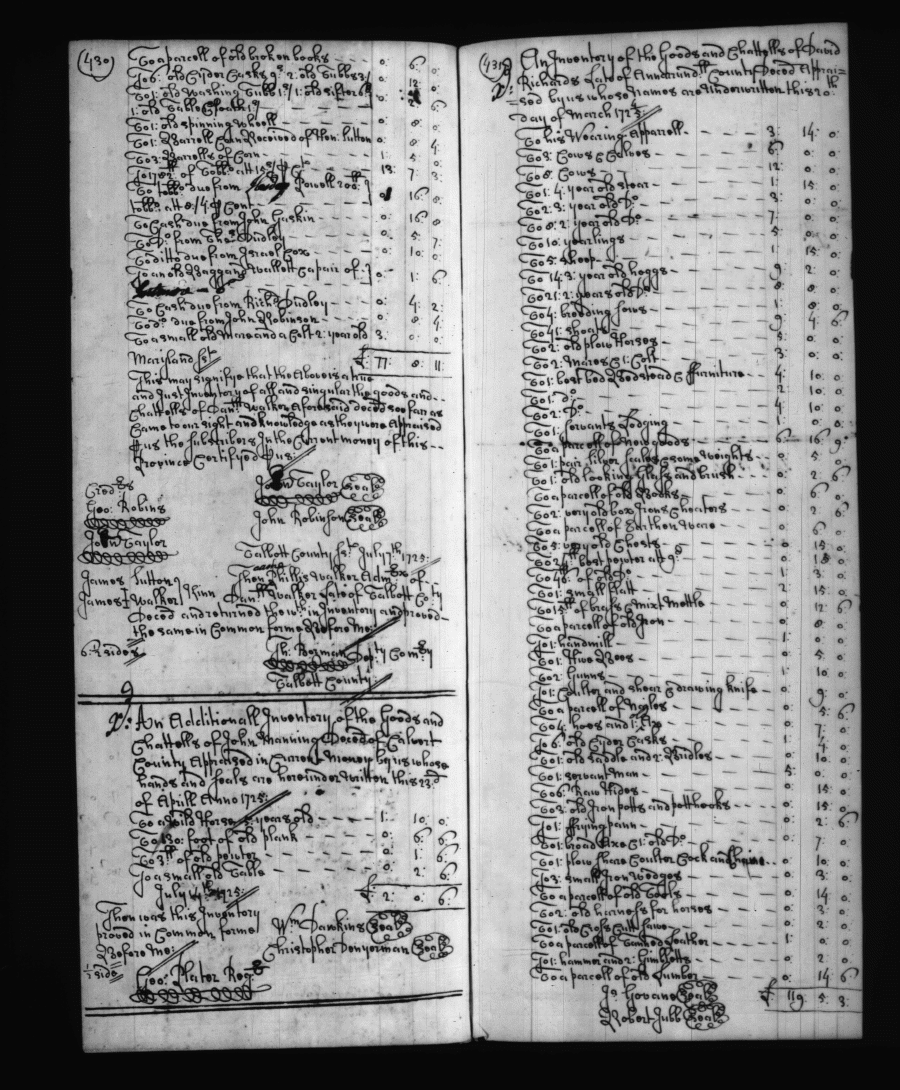 (430)
To a parcell of old broken books - - - 0: 6: 0:
To 6: old Cyder Casks 9s: 2: old Tubbs 3/
To 1: old Washing Tubb 1:/ 1: old sifter 6d 12:
1: old Table Cloath 1s
To 1: old spinning wheell - - 0: 8: 0:
To 1: Barrell Corn Received of Hen: Sutton 0: 8: 4:
To 3: Barrells of Corn - - 1: 5: 0:
13: 7: 3:
To Tobbo due from Powell 200lb
tobbo att 0/4 16: 0:
To Cash due from John Gaskin - - 0: 16: 0:
To Do from Thos: Dudley - - 0: 5: 7:
To ditto due from Israel Cox - - 0: 10: 0:
To an old Baggang Wallett & a pair of 0: 1: 6:
To Cash due from Richd: Dudley - - 0: 4: 2:
To do: due from John Robinson - - 0: 8: 4:
To a small old Mare and a Colt 2: year old 3: 0: 0:
£ 77: 8: 11:
Maryland sst
This may signifye that the Above is a true
and Just Inventory of all and singular the goods and
Chattells of Danll: Walker Aforesaid deced soe farr as
Came to our sight and knowledge as they were Appraised
us the subscribers In the Current money of this
Province Certifyed us:
Credrs
Geo: Robins
John Taylor
John Taylor (Seal)
John Robinson (Seal)
Talbott County sst: July 7th: 1725:
came
Then Phillis Walker Admrx of
James Sutton
James Walker Kinn Danll Walker Late of Talbott Coty
Deced and returned the within Inventory and proved
the same in Common forme Before Me:
6: ½ sides
Th: Bozman Depty Comry
Talbott County:
An Additionall Inventory of the Goods and
Chattells of John Manning Deced of Calvert
County Appraised in Currt: Money by us whose
hands and seals are hereunder written this 23d
of Aprill Anno 1725:
To a wild Horse 5 years old - - 1: 10: 0:
To 130: foot of old plank - - 0: 6: 6:
To 3lb of old pewter - - 0: 1: 6:
To a small old Table - - 0: 2: 6:
July 1725: £ 2: 0: 6:
Then was this Inventory
proved in Common forme
Before Me:
½ side
Wm: Dawkins (Seal)
Christopher Denyerman (Seal)
Geo: Plater Regr
(431)
An Inventory of the Goods and Chattells of David
Richards Late of Annarundll County Deced Apprai=
=sed by us whose Names are Underwritten this 20:th
day of March 1724/5:
To his Wearing Apparrell - - 3: 14: 0:
To 3: Cows & Calves - - 6: 0: 0:
To 8: Cows - - 12: 0: 0:
To 1: 4: year old stear - - 1: 15: 0:
To 2: 3: year old Do - - 3: 0: 0:
To 8: 2: year old Do - - 7: 0: 0:
To 10: yearlings - - 5: 0: 0:
To 5: sheep - - 1: 15: 0:
To 14: 3: year old hoggs - - 9: 2: 0:
To 21: 2: years old Do - - 8: 8: 0:
To 4: breeding sows - - 1: 8: 0:
To 41: shoats - - 9: 4: 6:
To 2: old plow Horses - - 5: 0: 0:
To 2: Mares & 1: Colt - - 3: 0: 0:
To 1: best bed Bedstead & ffurniture - - 4: 10: 0:
To 1: do: - - 2: 10: 0:
To 2: Do - - 4: 10: 0:
To 1: servants Lodging - - 1: 0: 0:
To a parcell of New goods - - 6: 16: 9:
To 1: pair silver scales & some weights - - 0: 5: 0:
To 1: old looking Glass and brush - - 0: 2: 6:
To a parcell of old Books - - 0: 6: 0:
To 2: very old box Irons & heaters - - 0: 2: 6:
To a parcell of Earthen Ware - - 0: 6: 0:
To 5: very old Chests - - 0: 15: 0:
To 21lb best pewter att 9d - - 0: 15: 9:
To 46: of old Do - - 1: 3: 0:
To 1: small flatt - - 2: 15: 0:
To 15lb of brass & mixt Mettle - - 0: 12: 6:
To a parcell of old Iron - - 0: 8: 0:
To 1: handmill - - 1: 0: 0:
To 1: Hive Bees - - 0: 5: 0:
To 2: Gunns - - 1: 10: 0:
To 1: Coulter and shear & drawing knife - - 0: 9: 0:
To a parcell of Nayles - - 0: 5: 6:
To 4: hoes and 1: Ax - - 0: 7: 0:
To 6: old Cyder Casks - - 1: 4: 0:
To 1: old saddle and 2: Bridles - - 0: 10: 0:
To 1: servant Man - - 5: 0: 0:
To 6: Raw Hides - - 0: 15: 0:
To 3: old Iron potts and potthooks - - 0: 15: 0:
To 1: ffrying pann - - 0: 2: 6:
To 1: broad Axe & 1: old Do - - 0: 7: 0:
To 1: plow share Coulter Cock and - - 0: 10: 0:
To 3: small Iron wedges - - 0: 3: 0:
To a parcell of old Tools - - 0: 14: 0:
To 2: old harness for horses - - 0: 3: 0:
To 1: old Cross Cutt saw - - 0: 2: 0:
To a parcell of tanned Leather - - 1: 0: 0:
To 1: hammer and 2: Gimbletts - - 0: 2: 0:
To a parcell of old Lumber - - 0: 14: 6:
£ 119: 5: 3:
Jo Govane (Seal)
Robert Jubb (Seal)